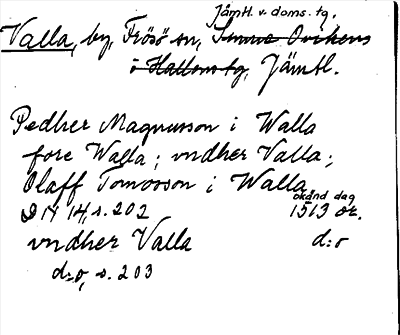 Jämtl. v. doms. tg.
Valla, by, Frösö sn, Sunne Ovikens
i Hallens tg, Jämtl.
Pedher Magnusson i Walla
fore Walla; vndher Valla;
Olaff Tomosson i Walla
okänd dag
DN 14, s. 202 1513 or.
vndher Valla d:o
d:o, s. 203